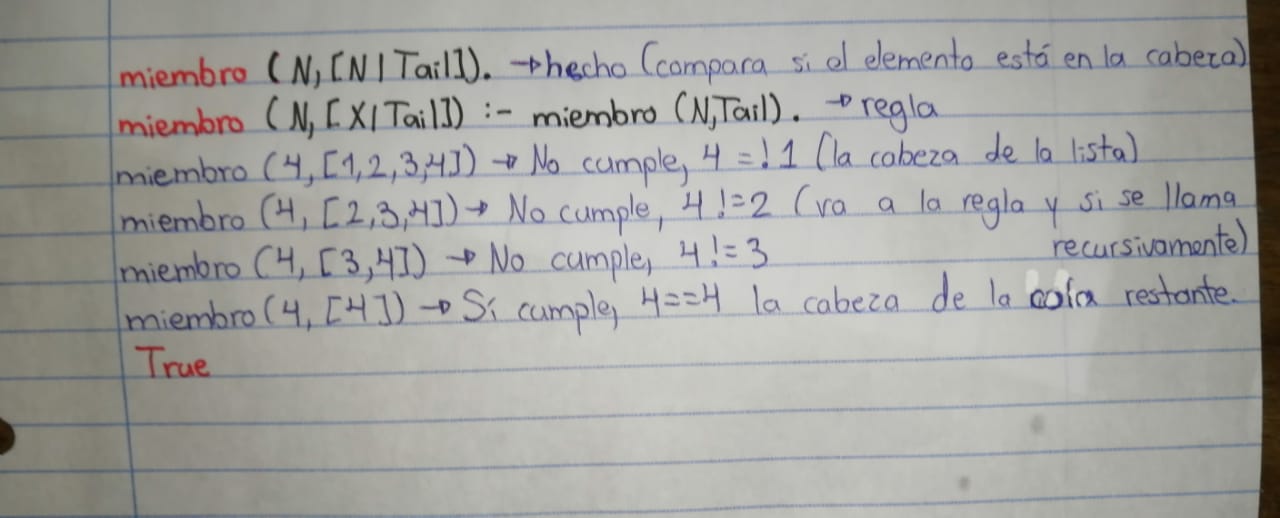 miembro (N, [N|Tail]). → hecho (compara si el elemento está en la cabeza)
miembro (N, [X|Tail]) :- miembro (N,Tail). → regla
miembro (4, [1,2,3,4]) → No cumple, 4 =! 1 (la cabeza de la lista)
miembro (4, [2,3,4]) → No cumple, 4 != 2 (va a la regla y si se llama
recursivamente)
miembro (4, [3,4]) → No cumple, 4 != 3
miembro (4, [4]) → Sí cumple, 4==4 la cabeza de la cola restante.
True